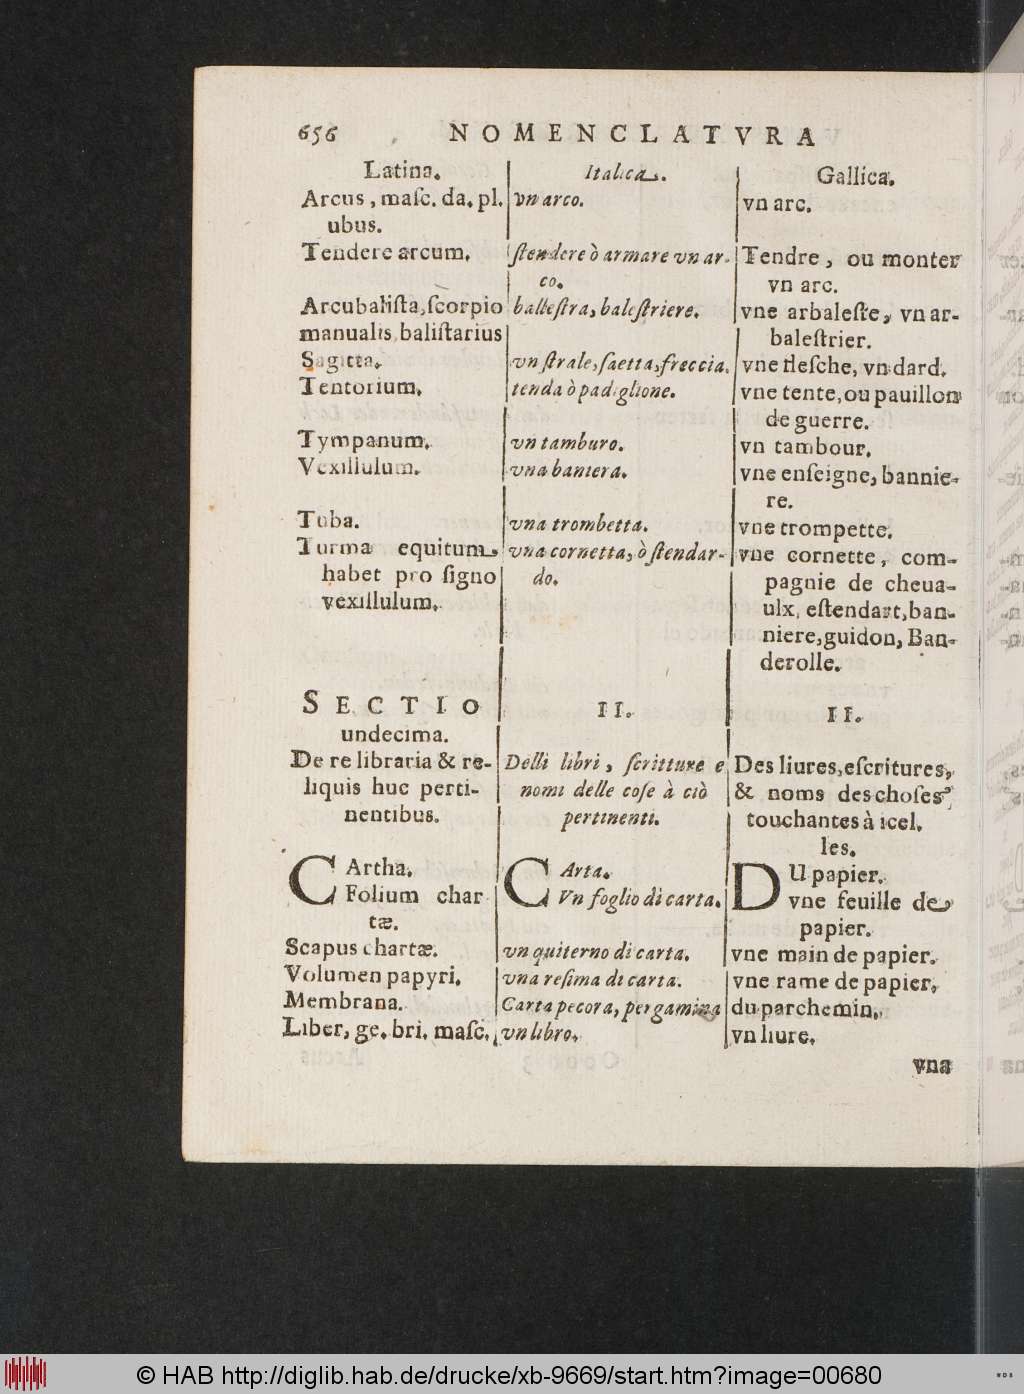 656 NOMENCLATVRA
Latina.
Arcus, maſc. da. pl.
ubus.
Tendere arcum.
Arcubaliſta, ſcorpio
manualis, baliſtarius
Sagitta.
Tentorium.
Tympanum.
Vexillulum.
Tuba.
Turma equitum,
habet pro ſigno
vexillulum.
SECTIO
undecima.
De re libraria & re-
liquis huc perti-
nentibus.
CArtha.
Folium char
tæ.
Scapus chartæ.
Volumen papyri.
Membrana.
Liber, ge. bri. maſc.
Italica.
vn arco.
ſtendere ò armare vn ar-
co.
balleſtra, baleſtriere.
vn ſtrale, ſaetta, freccia.
tenda ò padiglione.
vn tamburo.
vna baniera.
vna trombetta.
vna cornetta, ò ſtendar-
do.
II.
Delli libri, ſcritture e
nomi delle coſe à ciò
pertinenti.
CArta.
Vn foglio di carta.
vn quiterno di carta.
vna reſima di carta.
Carta pecora, pergamina
vn libro.
Gallica.
vn arc.
Tendre, ou monter
vn arc.
vne arbaleſte, vn ar-
baleſtrier.
vne fleſche, vn dard.
vne tente, ou pauillon
de guerre.
vn tambour.
vne enſeigne, bannie-
re.
vne trompette.
vne cornette, com-
pagnie de cheua-
ulx, eſtendart, ban-
niere, guidon, Ban-
derolle.
II.
Des liures, eſcritures,
& noms des choſes
touchantes à icel.
les.
DU papier.
vne feuille de
papier.
vne main de papier.
vne rame de papier.
du parchemin.
vn liure.
vna
© HAB http://diglib.hab.de/drucke/xb-9669/start.htm?image=00680